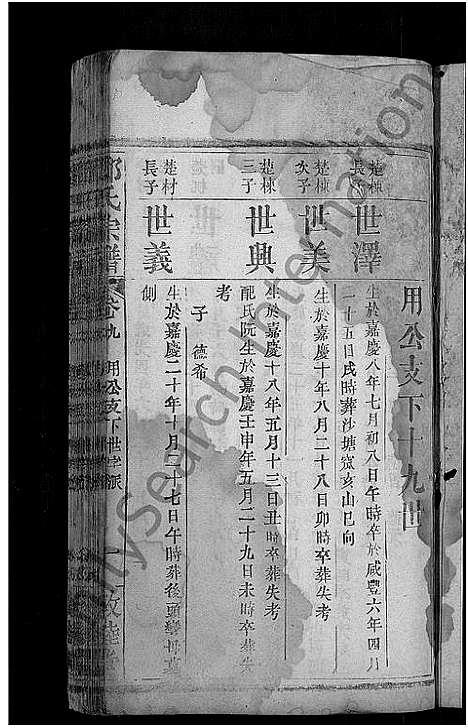 用公支下十九世
楚棟
長子
世澤
生於嘉慶八年七月初八日午時卒於咸豐六年四月
一十五日戌時葬沙塘窩亥山巳向
楚棟
次子
世美
生於嘉慶十年八月二十八日卯時卒葬失考
楚棟
三子
世興
生於嘉慶十八年五月十三日丑時卒葬失考
配氏阮生於嘉慶壬申年五月二十九日未時卒葬失
考
子 德希
楚材
長子
世義
生於嘉慶二十年十月二十七日午時葬後頭
側
氏宗譜
卷九
用公支下世字派
FamilySearch International